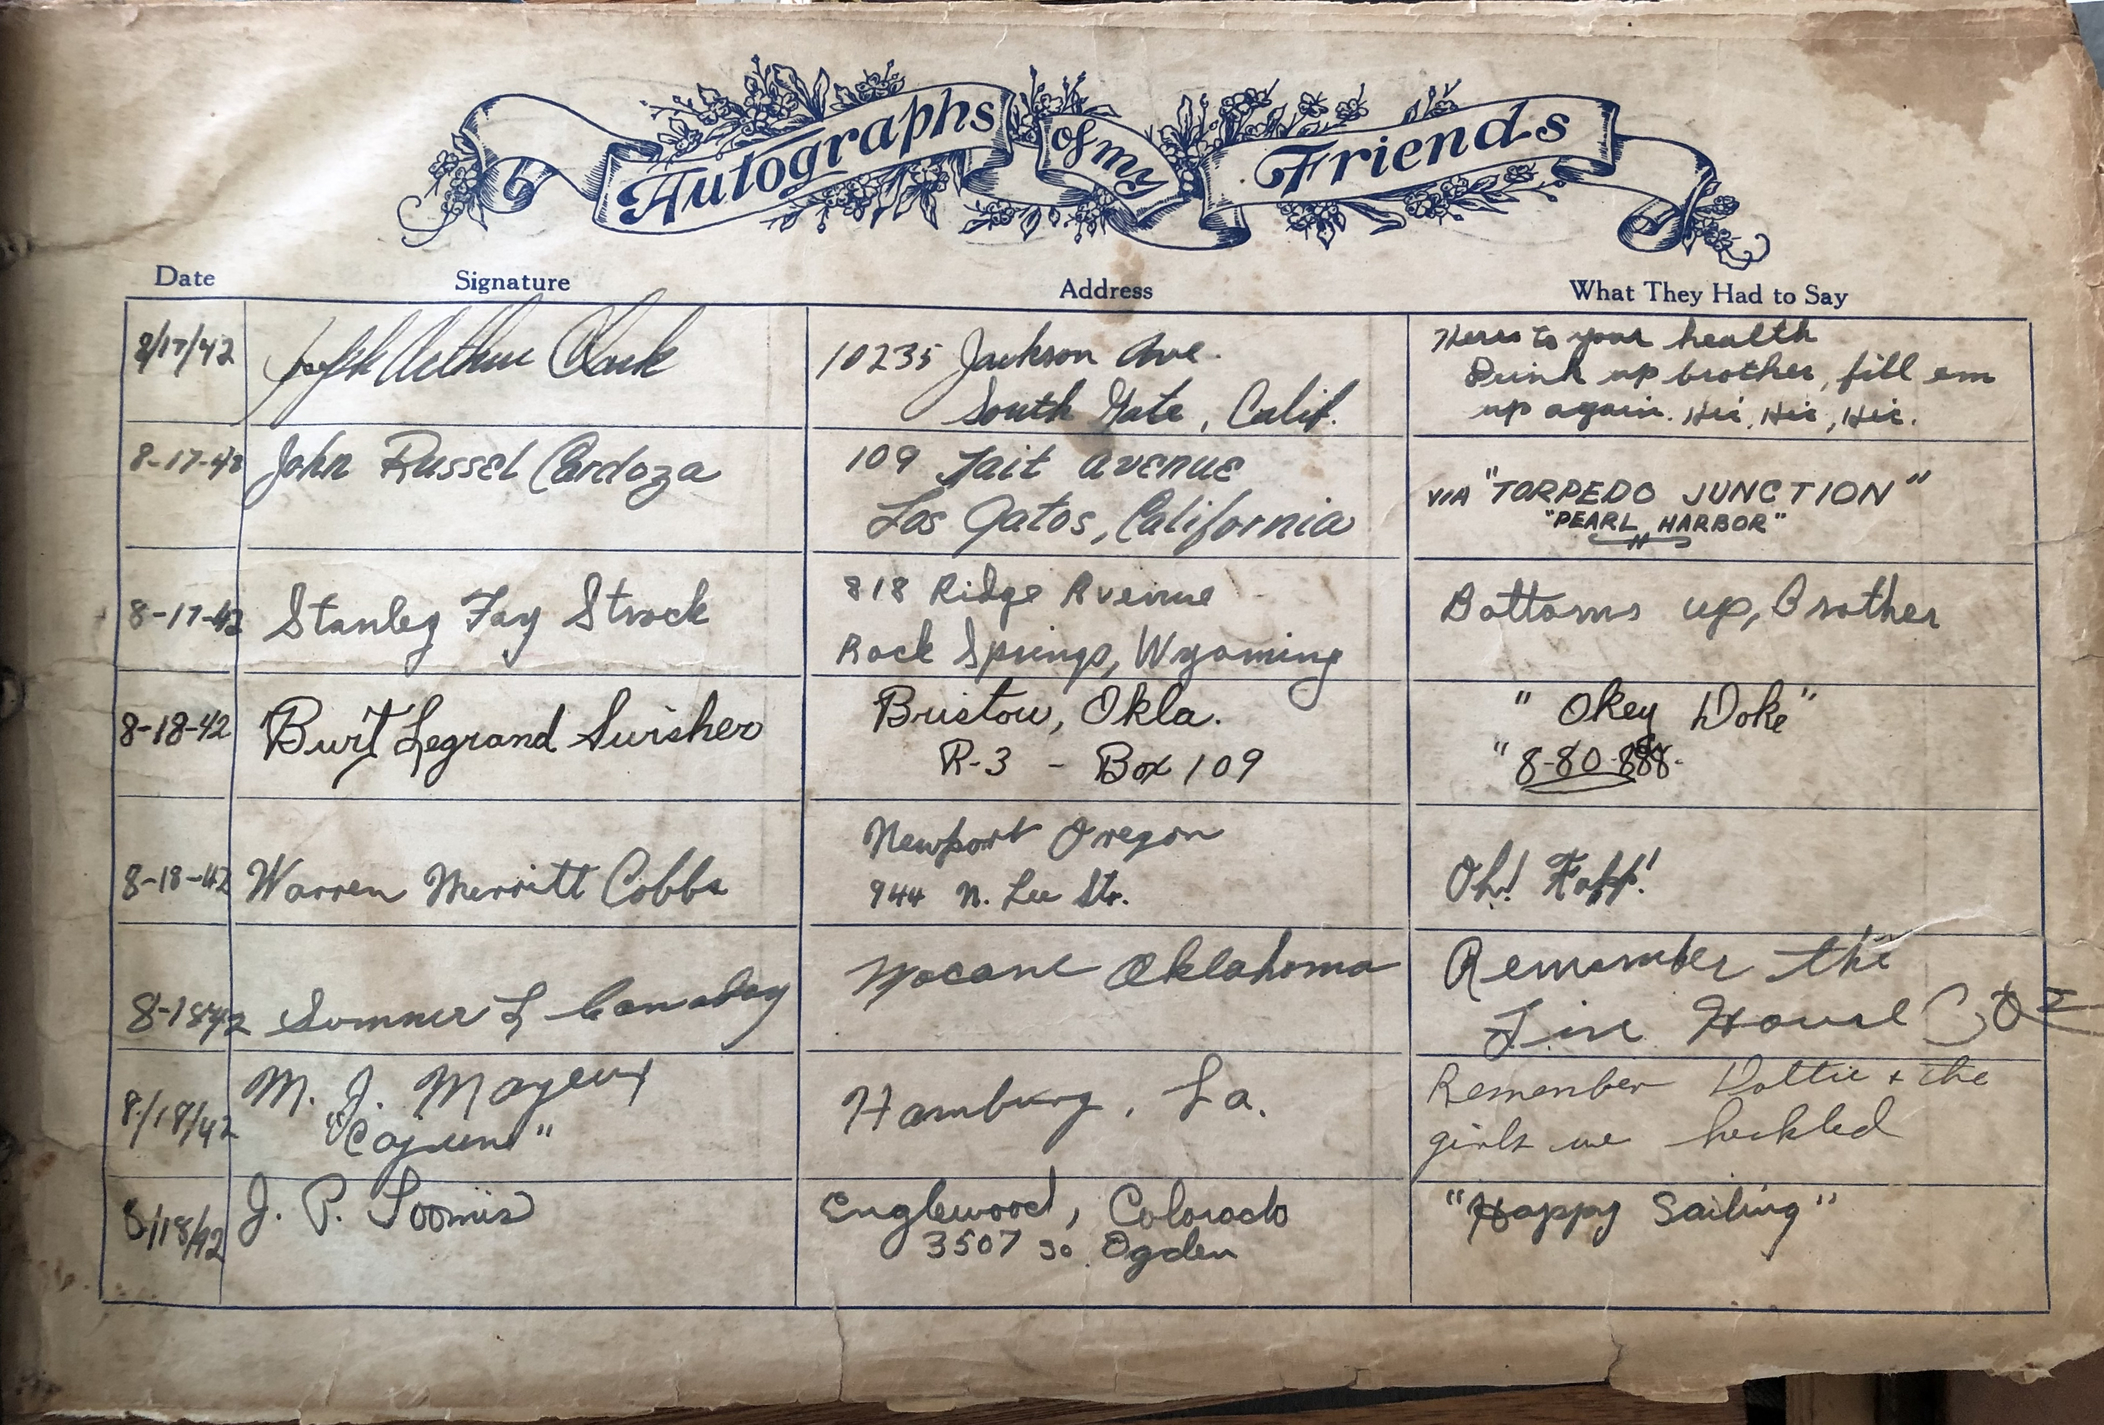 Autographs of my Friends
Date Signature Address What They Had to Say
8/17/42 Joseph Arthur Clark 10235 Jackson Ave. Heres to your health
South Gate, Calif. Drink up brother, fill em
up again. Hic, Hic, Hic.
8-17-42 John Russel Cardoza 109 Tait Avenue
Los Gatos, California
VIA "TORPEDO JUNCTION"
"PEARL HARBOR"
8-17-42 Stanley Fay Strock 818 Ridge Avenue Bottoms up, Brother
Rock Springs, Wyoming
8-18-42 Burt Legrand Swisher Bristow, Okla. "Okey Doke"
R-3 - Box 109 "8-80-888-
8-18-42 Warren Merritt Cobbs Newport Oregon Oh!
944 N. Lee Str.
8-18-42 Sumner L Canaday Mocane Oklahoma Remember the
House
8/18/42 M. J. Mayeux Hamburg, La. Remember Dottie & the
girls we heckled
8/18/42 J. P. Loomis Englewood, Colorado "Happy Sailing"
3507 So. Ogden